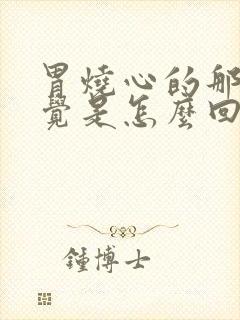 胃燒心的那
覺是怎麼回
鍾博士